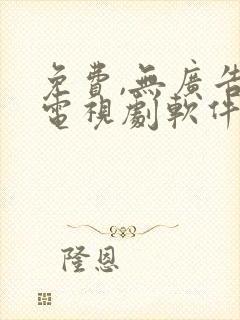 免費,無廣告
電視劇軟件
隆恩